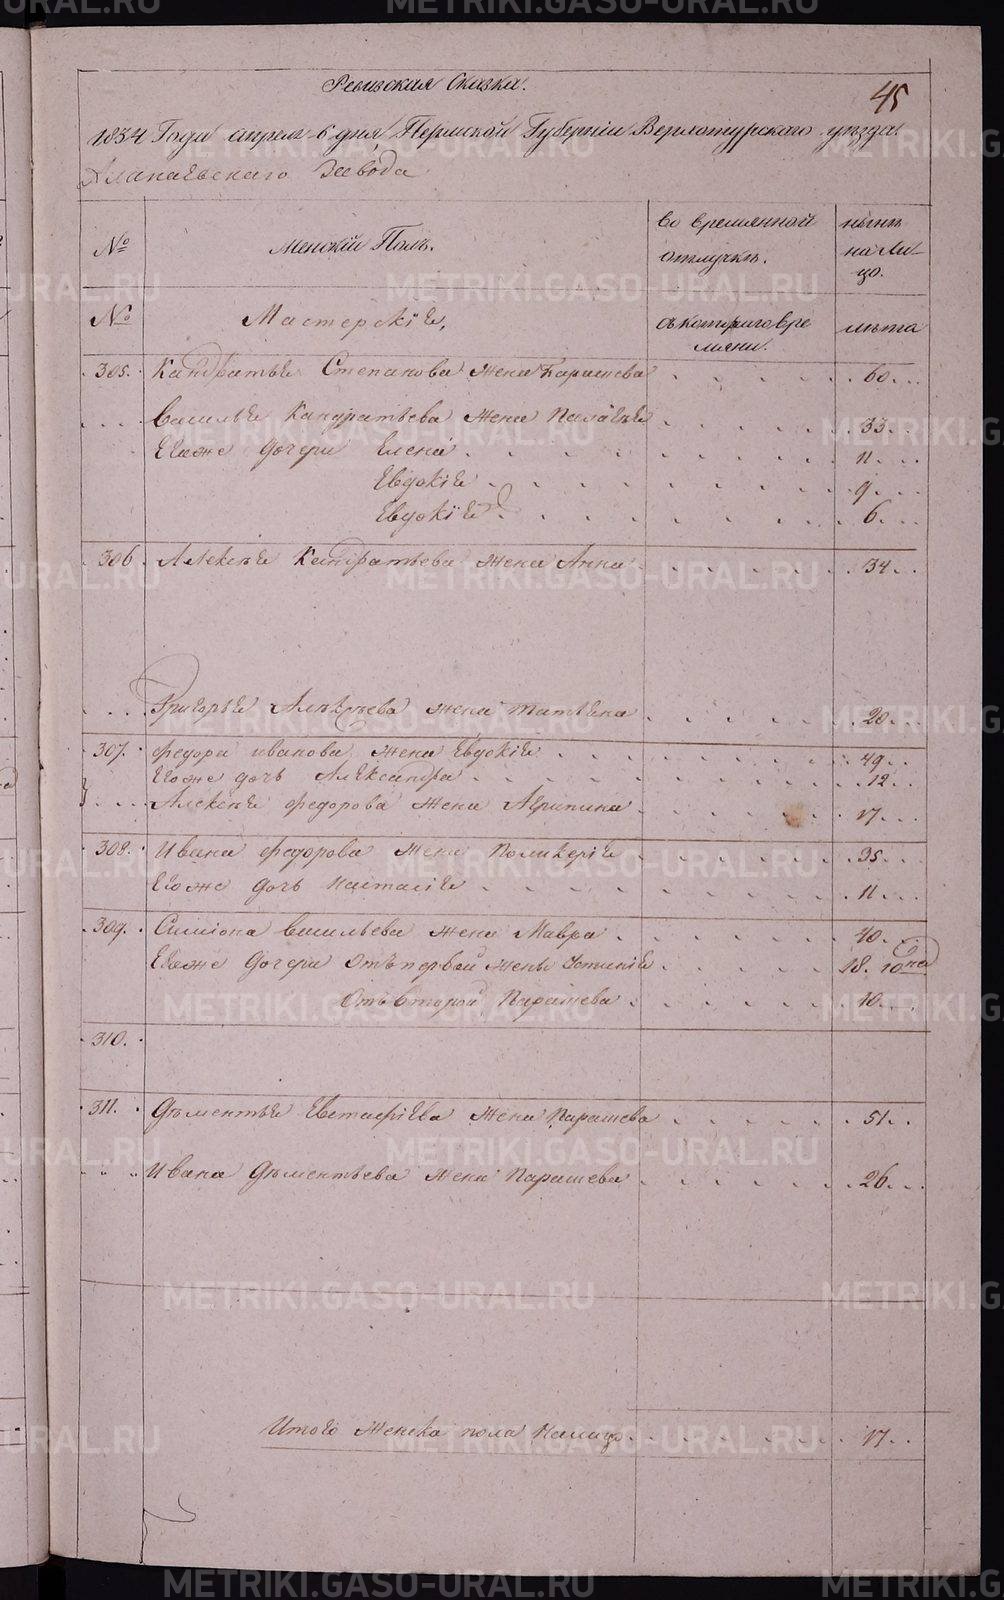 Ревизская Сказка.
45
1834 Года апреля 6 дня, Пермской Губернии Верхотурского уезда
Алапаевского Завода
№ Женский Полъ. во временной отлучке. ныне на Ли-
цо.
№ Мастерские, съ котораго вре
мяни. лета
305. Кандратья Степанова жена Парасковья 60
Василья Кандратьева жена Палагея 33
Егоже дочери Елена 11
Евдокия 9
Евдокия 6
306 Алексея Кандратьева жена Анна 34
Григорья Алексеева жена Татьяна 20
307. Федора иванова жена Евдокия 49
Егоже дочь Александра 12
Алексея федорова жена Агрипина 17
308. Ивана федорова жена 35
Егоже дочь Настасия 11
309. Симиона васильева жена Мавра 40
Егоже дочери отъ первой жены Устиния 18
Отъ второй Парасковья 10
310.
311. Дементья Евстафиева жена Парасковья 51
Ивана Дементьева жена Парасковья 26
Итого женска пола налицо 17
METRIKI.GASO-URAL.RU